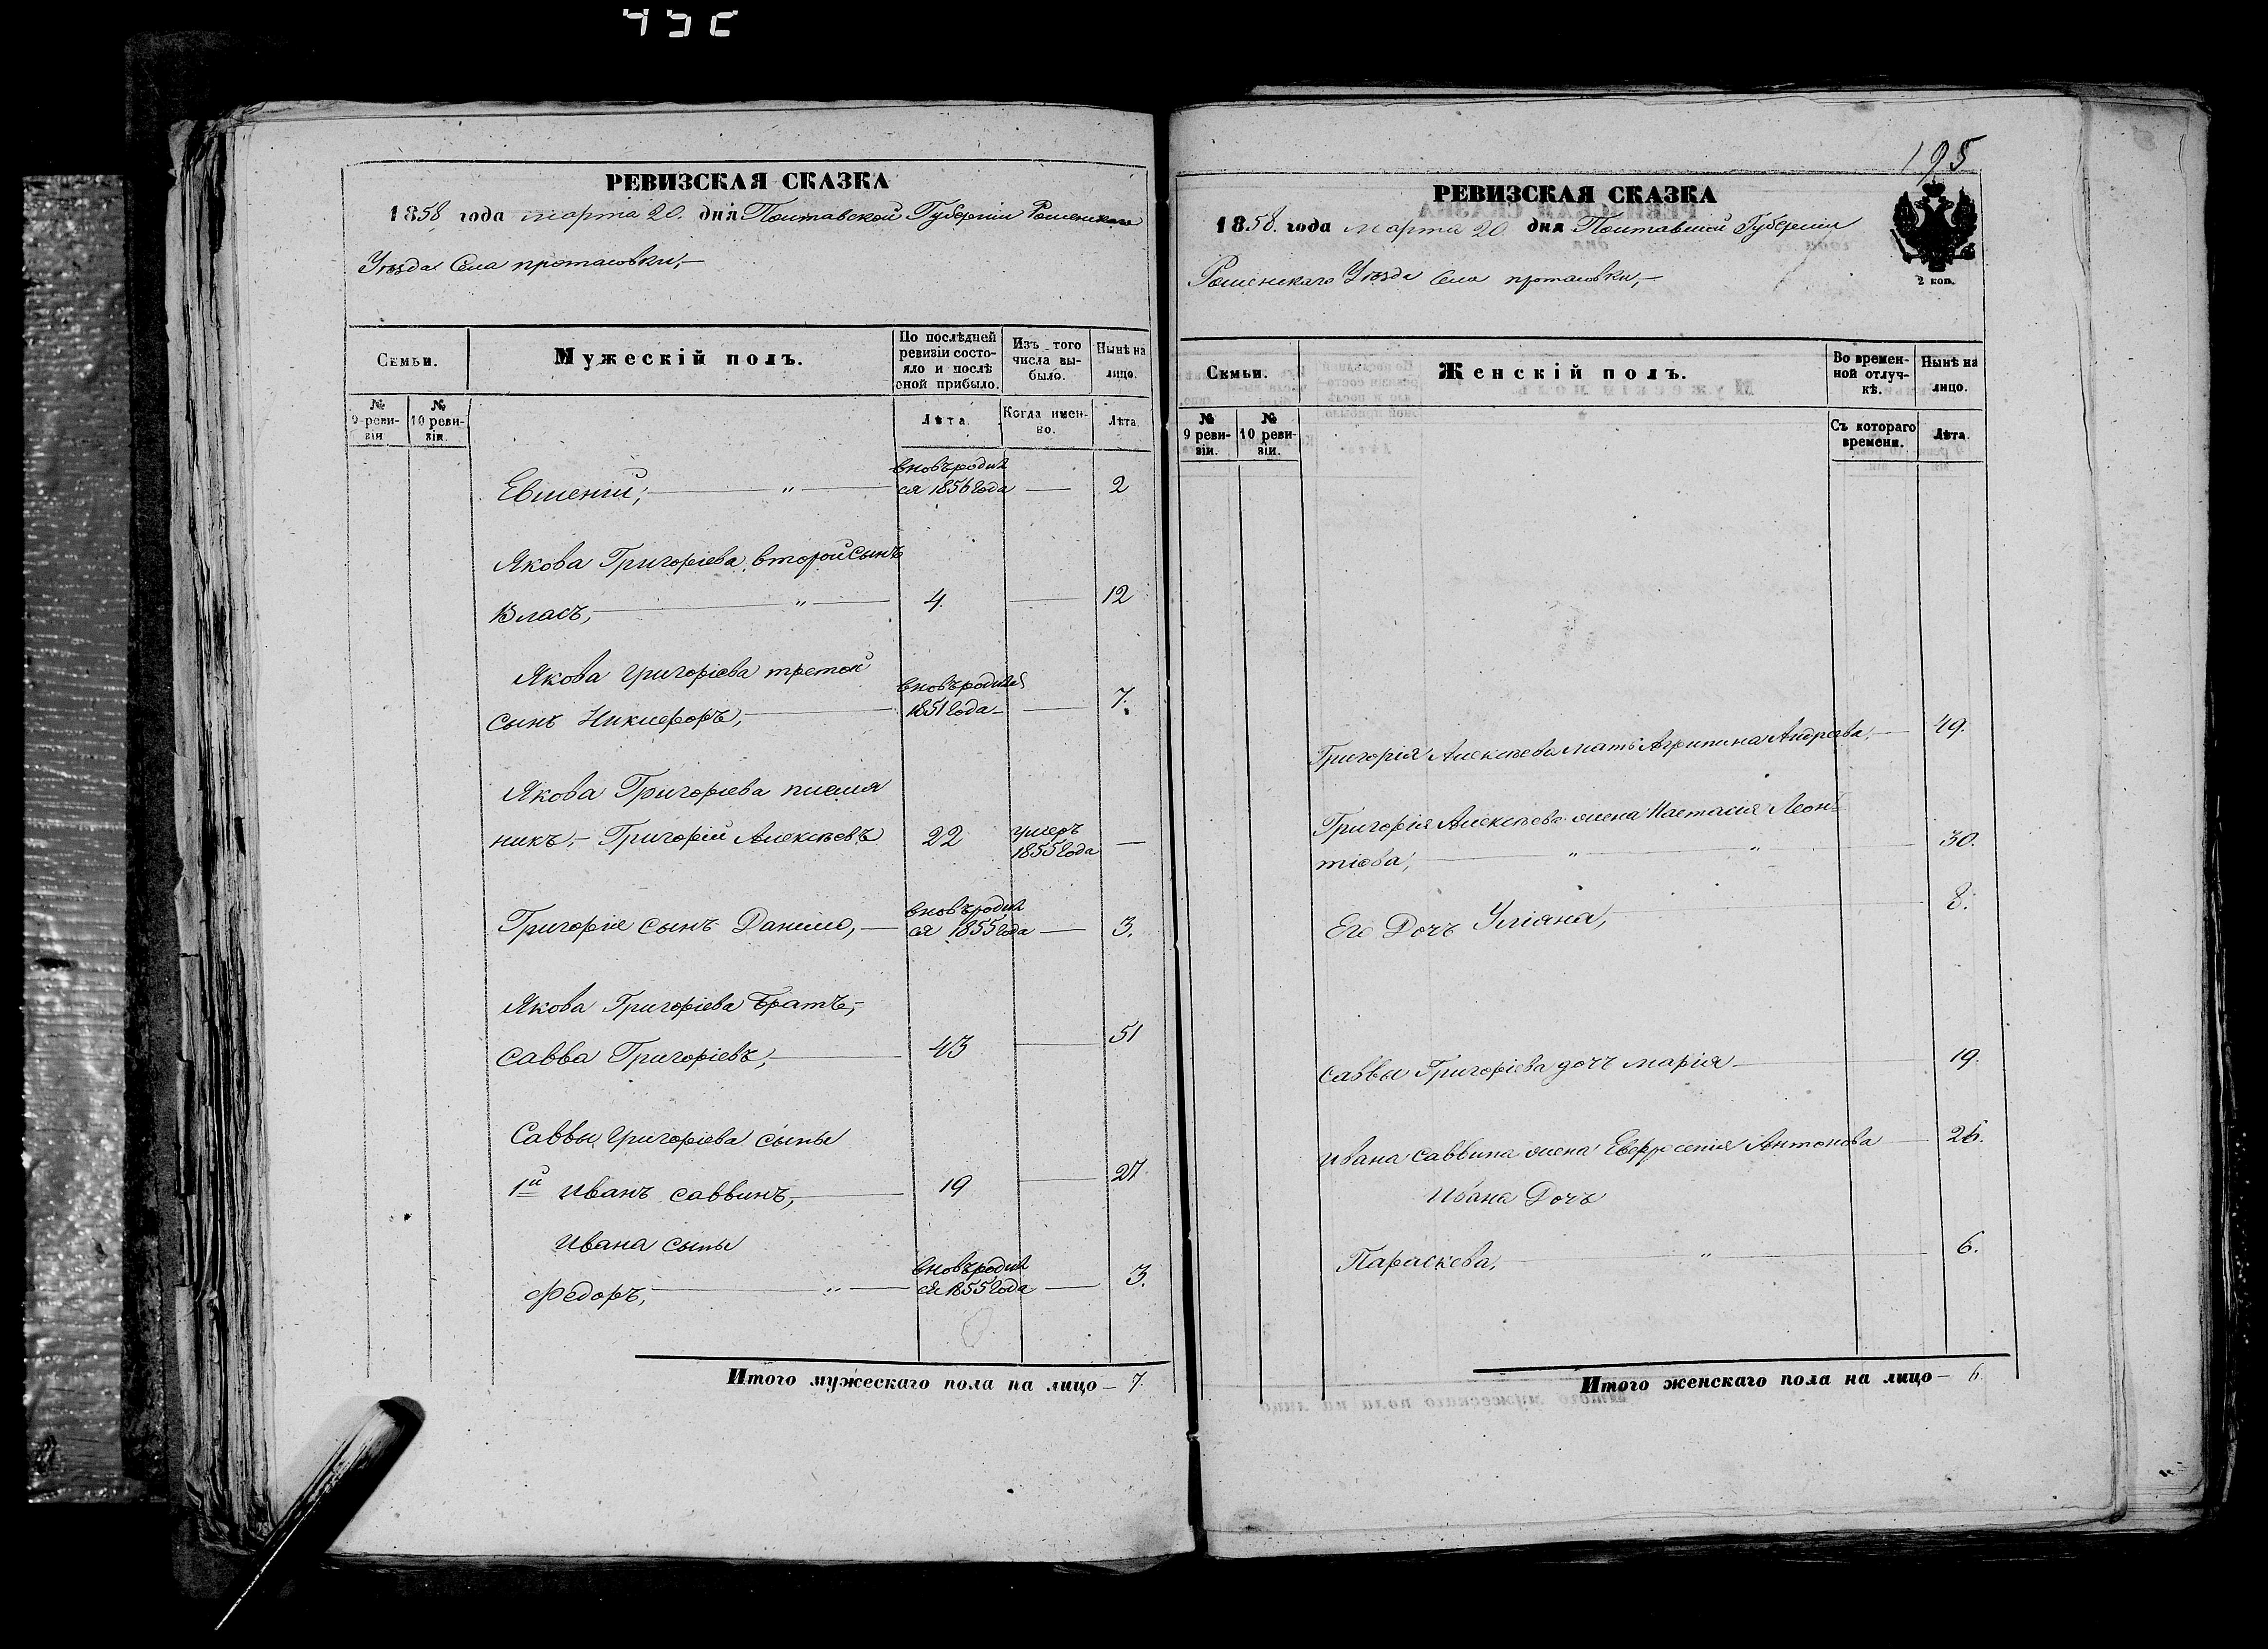 195
РЕВИЗСКАЯ СКАЗКА
1858 года марта 20. дня Полтавской Губерніи Роменскаго
Уѣзда Села протасовки,—
Семьи.
Мужескій полъ.
По послѣдней ревизіи состояло и послѣ оной прибыло.
Изъ того числа выбыло.
Нынѣ на лицо.
№ 9 ревизіи
№ 10 ревизіи.
Лѣта.
Когда именно.
Лѣта.
Евгеній, — " — вновь родил
ся 1856 года — 2
Якова Григоріева второй сынъ
Власъ, — " — 4. — 12
Якова григоріева третой
сынъ Никифоръ, — вновь родился
1851 года — 7.
Якова Григоріева племя
никъ,- Григорій Алексѣевъ 22 умеръ
1855 года —
Григорія сынъ Данило, — вновь родил
ся 1855 года — 3.
Якова Григоріева братъ,-
савва Григоріевъ, — 43 — 51
Саввы Григоріева сыны
1й иванъ саввинъ, — 19 — 27
ивана сыны
Федоръ, — " — вновь родил
ся 1855 года — 3.
Итого мужескаго пола на лицо — 7.
РЕВИЗСКАЯ СКАЗКА
1858. года марта 20 дня Полтавской Губерніи
Роменскаго Уѣзда Села протасовки,—
2 коп.
Семьи.
Женскій полъ.
Во временной отлучкѣ.
Нынѣ на лицо.
№ 9 ревизіи.
№ 10 ревизіи.
Съ котораго времени.
Лѣта.
Григорія Алексѣева мать Агрипина Андреева, — 49.
Григорія Алексѣева жена Настасія Леон-
тіева, — " — " — 30.
Его Дочь Уліяна, — 8.
саввы Григоріева дочь марія — 19.
ивана саввина жена Евфросенія Антонова — 26.
ивана Дочь
Параскева, — " — 6.
Итого женскаго пола на лицо — 6.